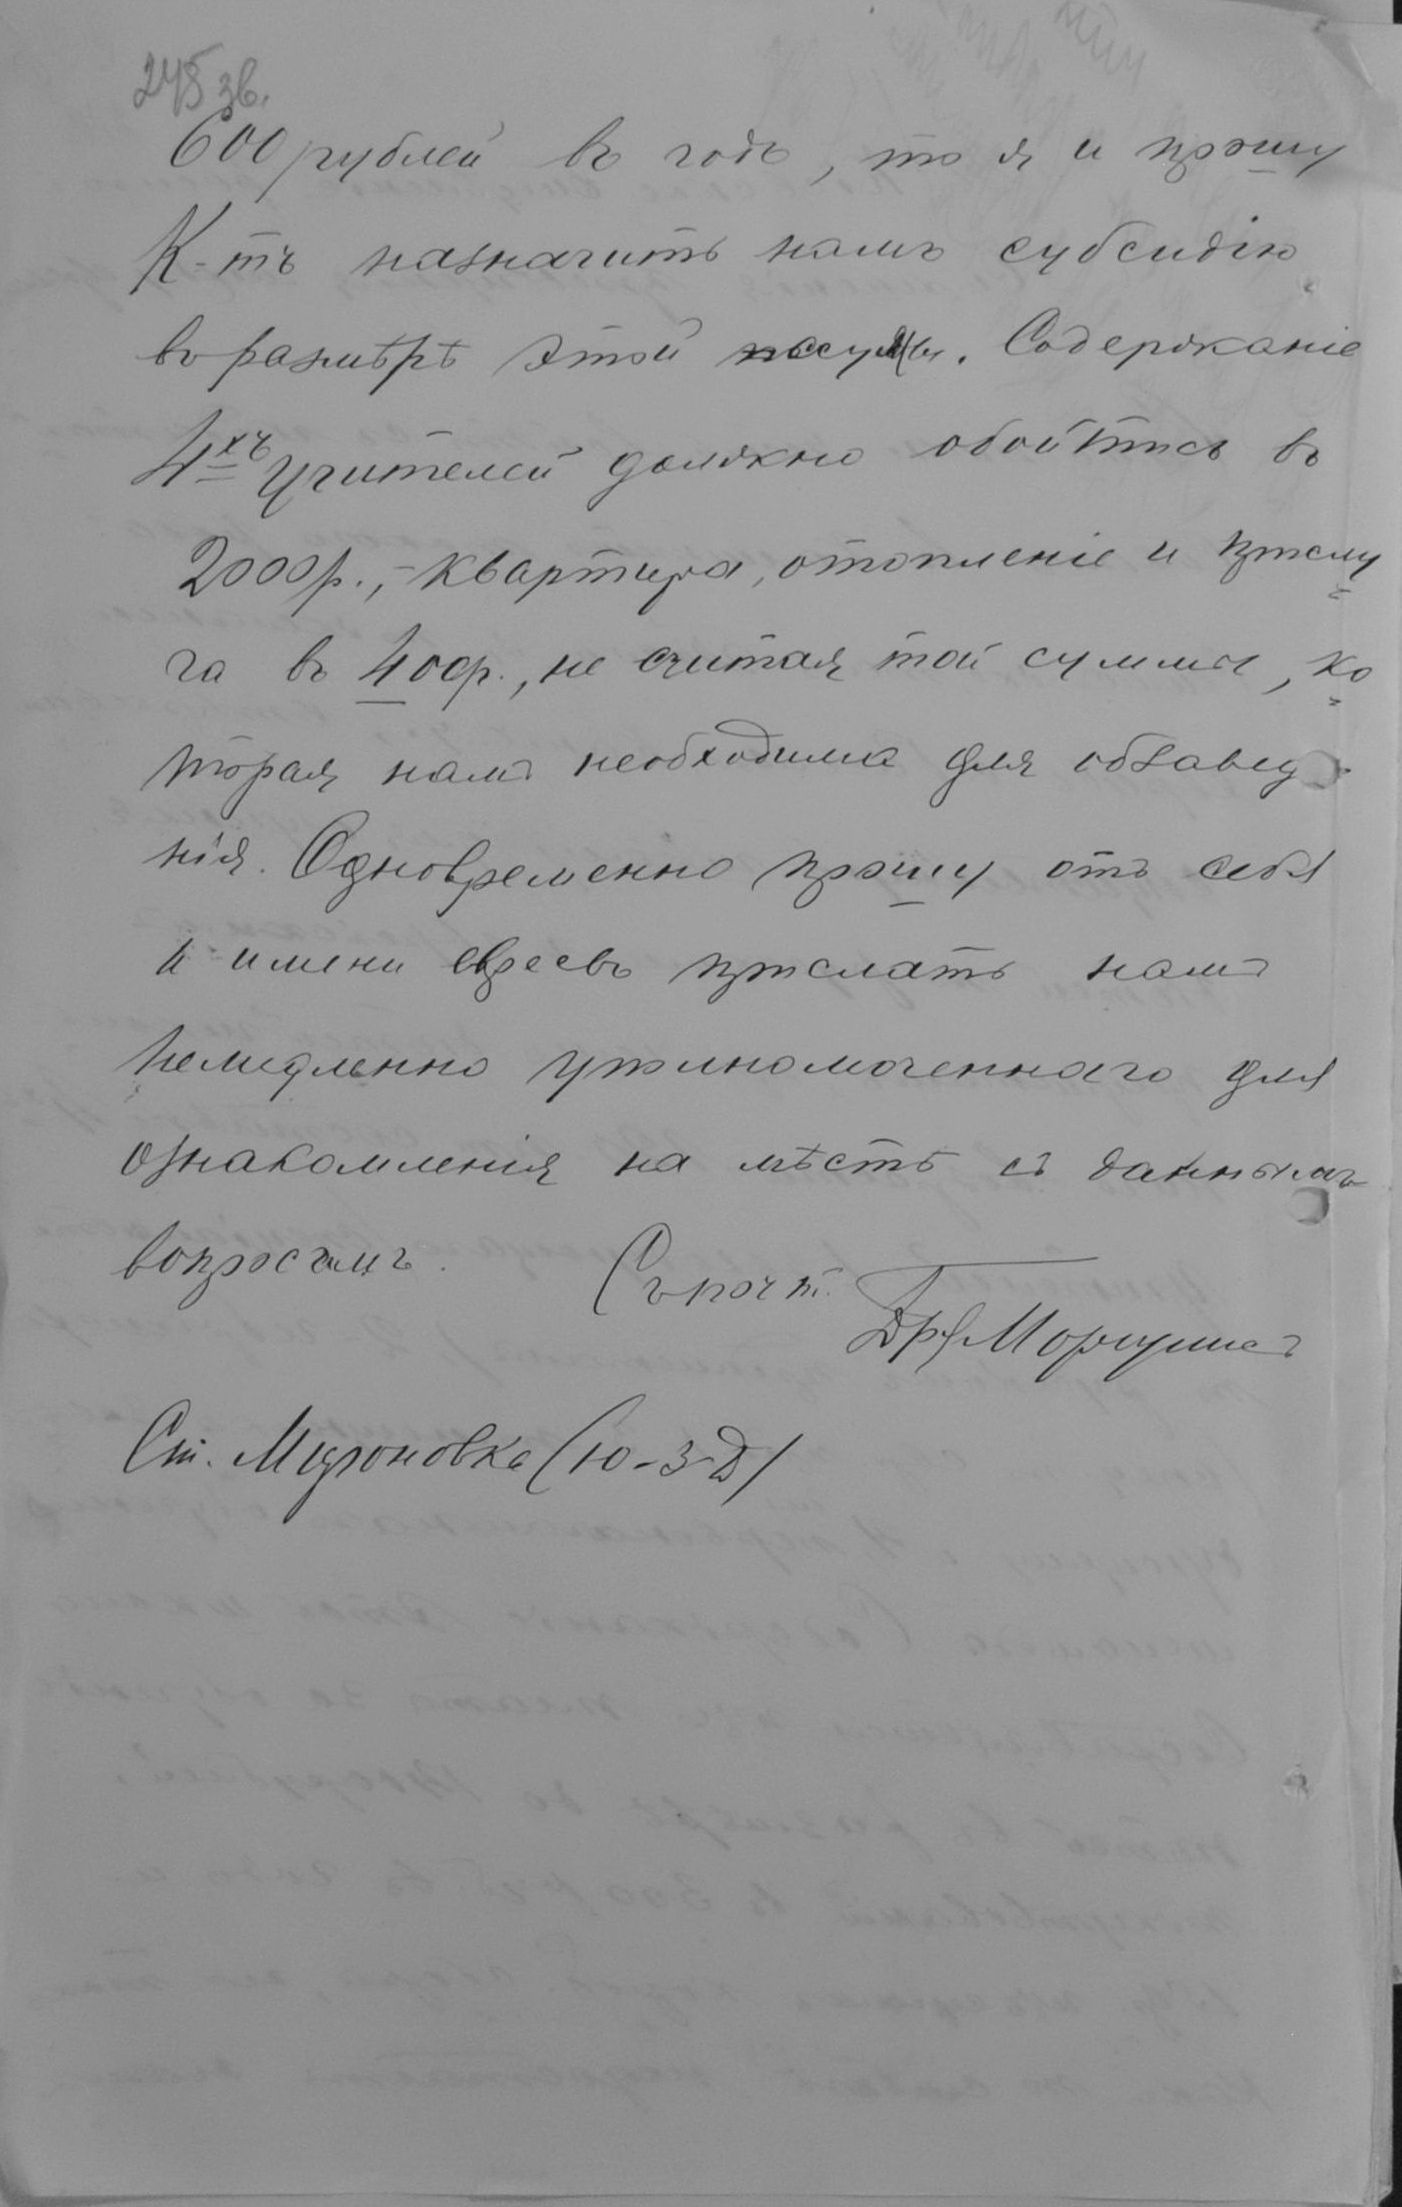 245 зв.
600 рублей въ годъ, то я и прошу
К-тъ назначить намъ субсидію
въ размѣрѣ этой суммы. Содержаніе
4хъ учителей должно обойтись въ
2000р., - квартира, отопленіе и прислу
га въ 400р., не считая той суммы, ко
торая намъ необходима для обзаведе
нія. Одновременно прошу отъ себя
и имени евреевъ прислать намъ
немедленно уполномоченнаго для
ознакомленія на мѣстѣ съ даннымъ
вопросамъ. Съ почт.
Др
Ст. Мироновка (Ю-З-Д)